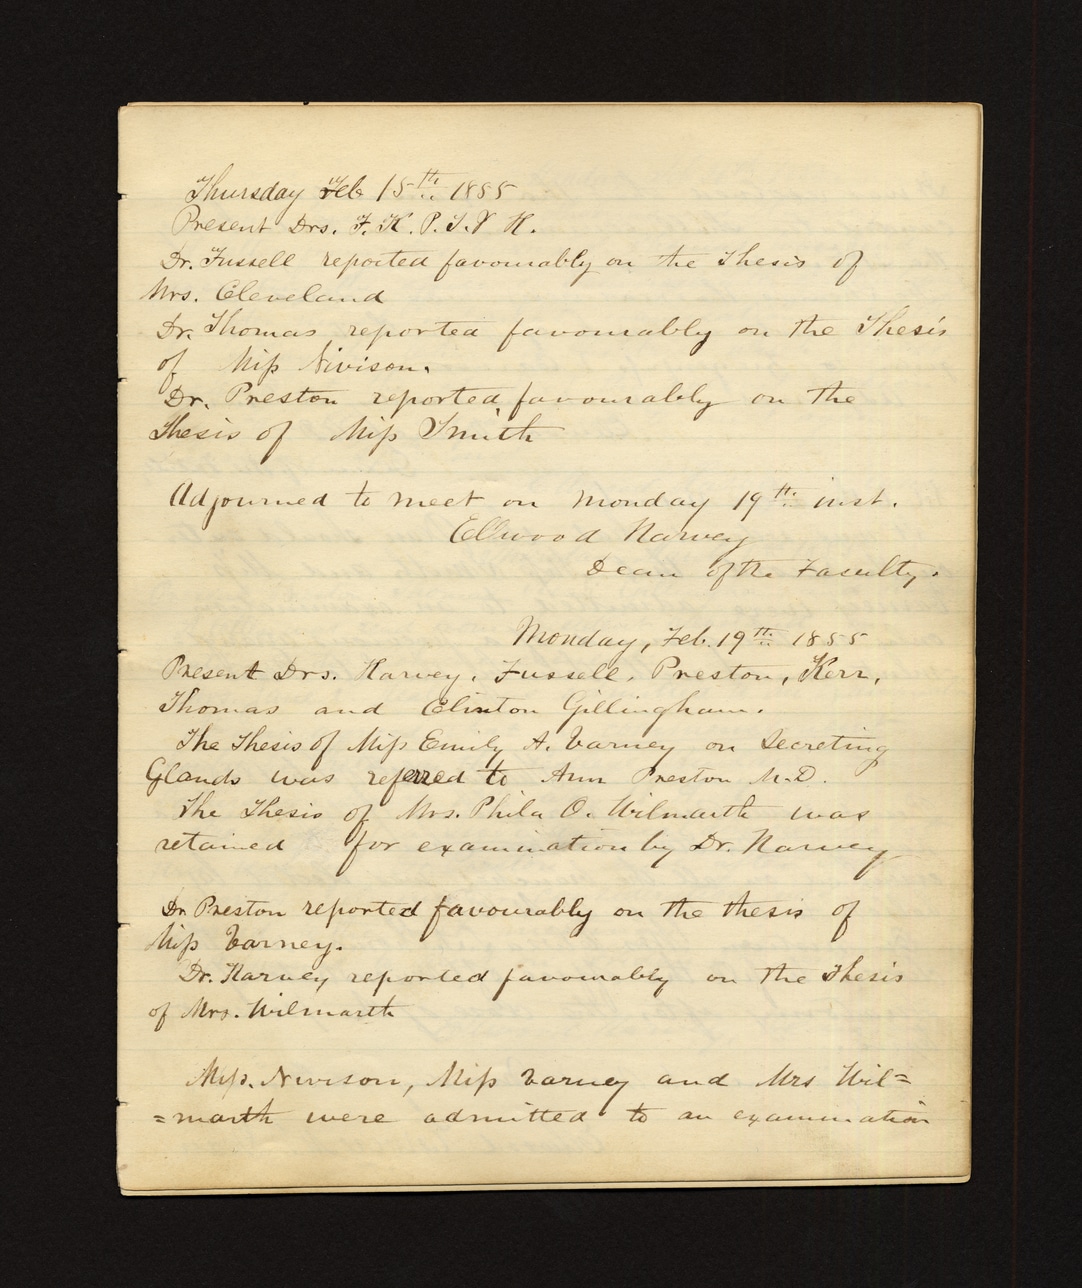 Thursday Feb 15th 1855
Present Drs. F. K. P. T. & H.
Dr. Fussell reported favourably on the Thesis of
Mrs. Cleveland
Dr. Thomas reported favourably on the Thesis
of Miss Nivison.
Dr. Preston reported favourably on the
Thesis of Miss Smith
Adjourned to meet on Monday 19th inst.
Ellwood Harvey
Dean of the Faculty.
Monday, Feb. 19th 1855
Present Drs. Harvey, Fussell, Preston, Kerr,
Thomas and Clinton Gillingham.
The Thesis of Miss Emily A. Varney on Secreting
Glands was referred to Ann Preston M.D.
The Thesis of Mrs. Phila O. Wilmarth was
retained for examination by Dr. Harvey
Dr. Preston reported favourably on the thesis of
Miss Varney.
Dr. Harvey reported favourably on the Thesis
of Mrs. Wilmarth
Miss. Nivison, Miss Varney and Mrs Wil=
=marth were admitted to an examination